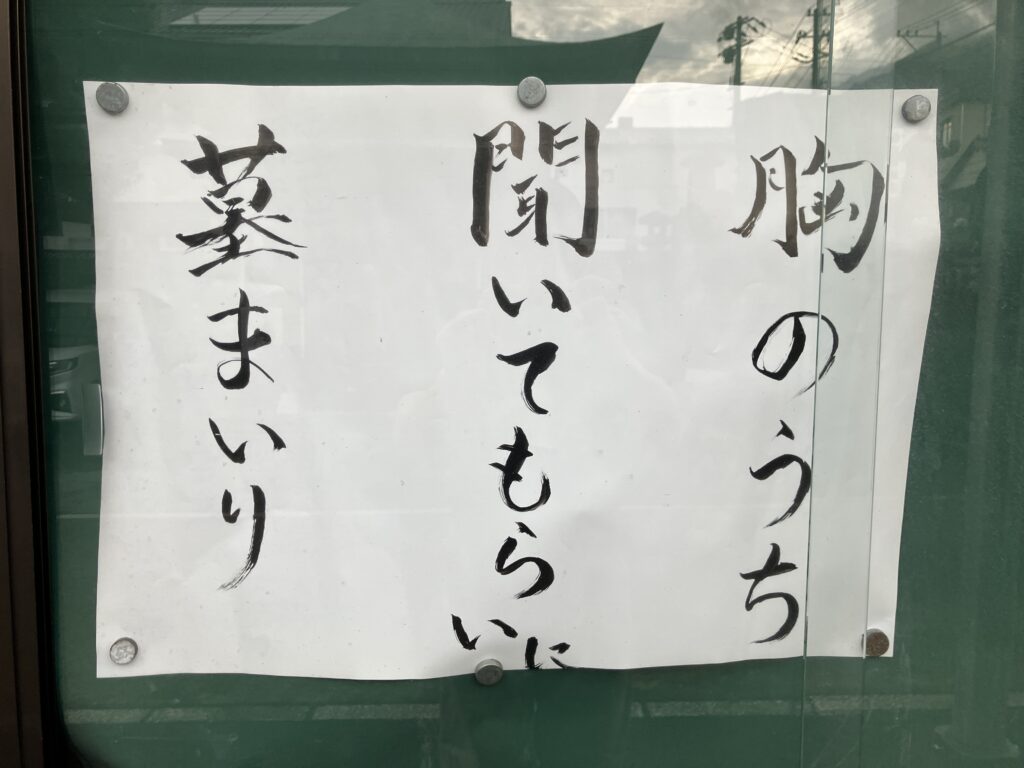 胸のうち
聞いてもらいに
墓まいり